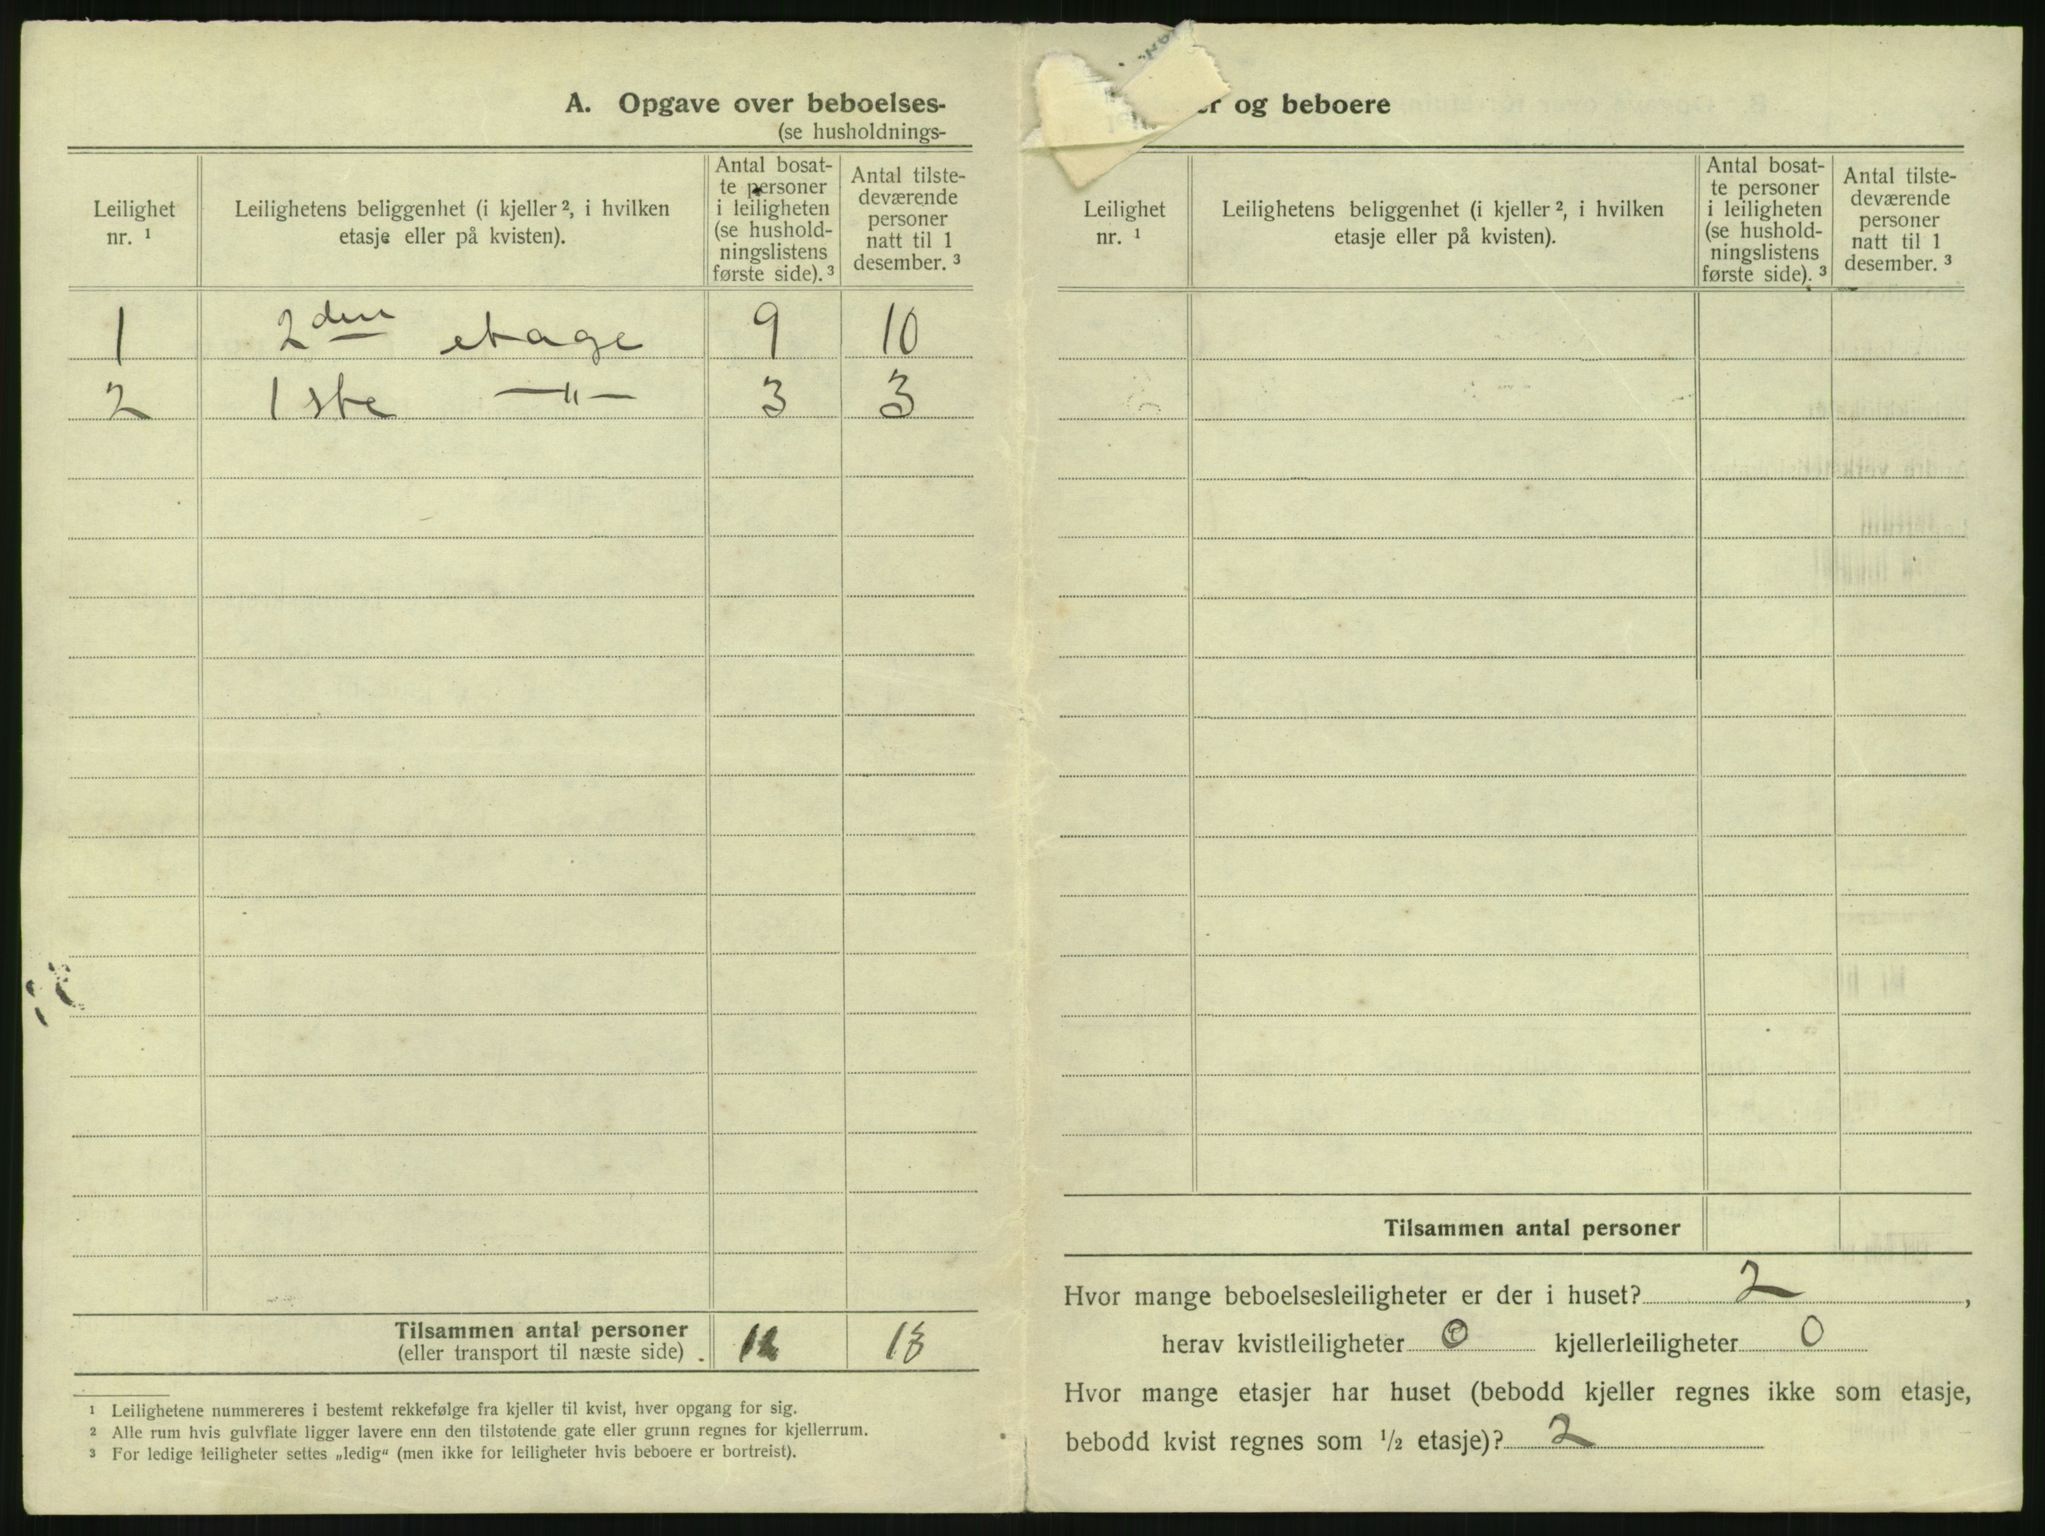 A. Opgave over beboelses-
(se husholdnings-
Leilighet nr. ¹
Leilighetens beliggenhet (i kjeller ², i hvilken etasje eller på kvisten).
Antal bosat-
te personer
i leiligheten
(se hushold-
ningslistens
første side). ³
Antal tilste-
deværende
personer
natt til 1
desember. ³
1 2den etage 9 10
2 1ste —"— 3 3
Tilsammen antal personer
(eller transport til næste side) . 12 13
¹ Leilighetene nummereres i bestemt rekkefølge fra kjeller til kvist, hver opgang for sig.
² Alle rum hvis gulvflate ligger lavere enn den tilstøtende gate eller grunn regnes for kjellerrum.
³ For ledige leiligheter settes „ledig“ (men ikke for leiligheter hvis beboere er bortreist).
er og beboere
Leilighet nr. ¹
Leilighetens beliggenhet (i kjeller ², i hvilken etasje eller på kvisten).
Antal bosat-
te personer
i leiligheten
(se hushold-
ningslistens
første side). ³
Antal tilste-
deværende
personer
natt til 1
desember. ³
Tilsammen antal personer
Hvor mange beboelsesleiligheter er der i huset? 2 ,
herav kvistleiligheter 0 kjellerleiligheter 0
Hvor mange etasjer har huset (bebodd kjeller regnes ikke som etasje,
bebodd kvist regnes som ½ etasje)? 2